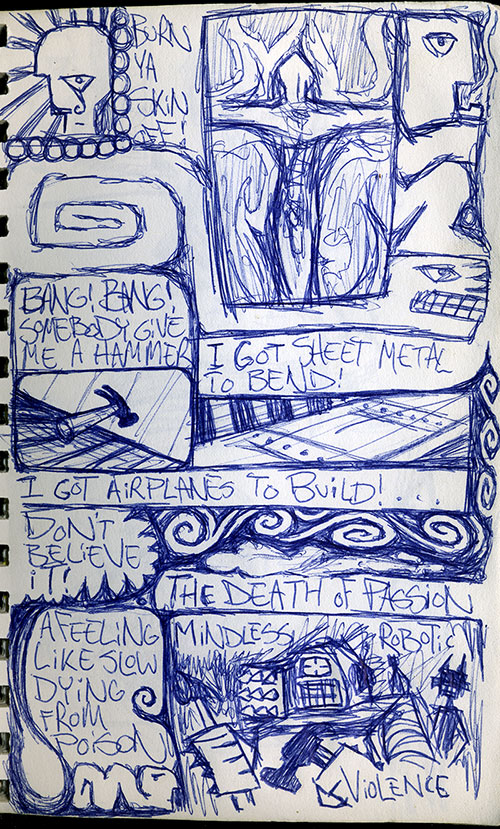 BURN
YA
SKIN
OFF!
BANG! BANG!
SOMEBODY GIVE
ME A HAMMER
I GOT SHEET METAL
TO BEND!
I GOT AIRPLANES TO BUILD! . . .
DON'T
BELIEVE
IT!
THE DEATH OF PASSION
A FEELING
LIKE SLOW
DYING
FROM
POISON
MINDLESS ROBOTIC
VIOLENCE